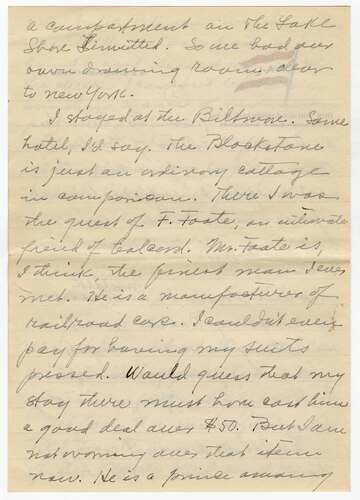 a compartment on the Lake
Shore Limitted. Some had our
own drawing room clear
to new York.
I stayed at the Biltmore. Some
hotel, I'd say. The Blackstone
is just an ordinary cottage
in comparison. There I was
the guest of F. Foate, an intimate
freind of Calcord. Mr. Foate is,
I think, the finest man I ever
met. He is a manufacturer of
railroad cars. I couldn't even
pay for having my suits
pressed. Would guess that my
stay there must have cost him
a good deal over $50. But I am
not worrying over that item
now. He is a prince among